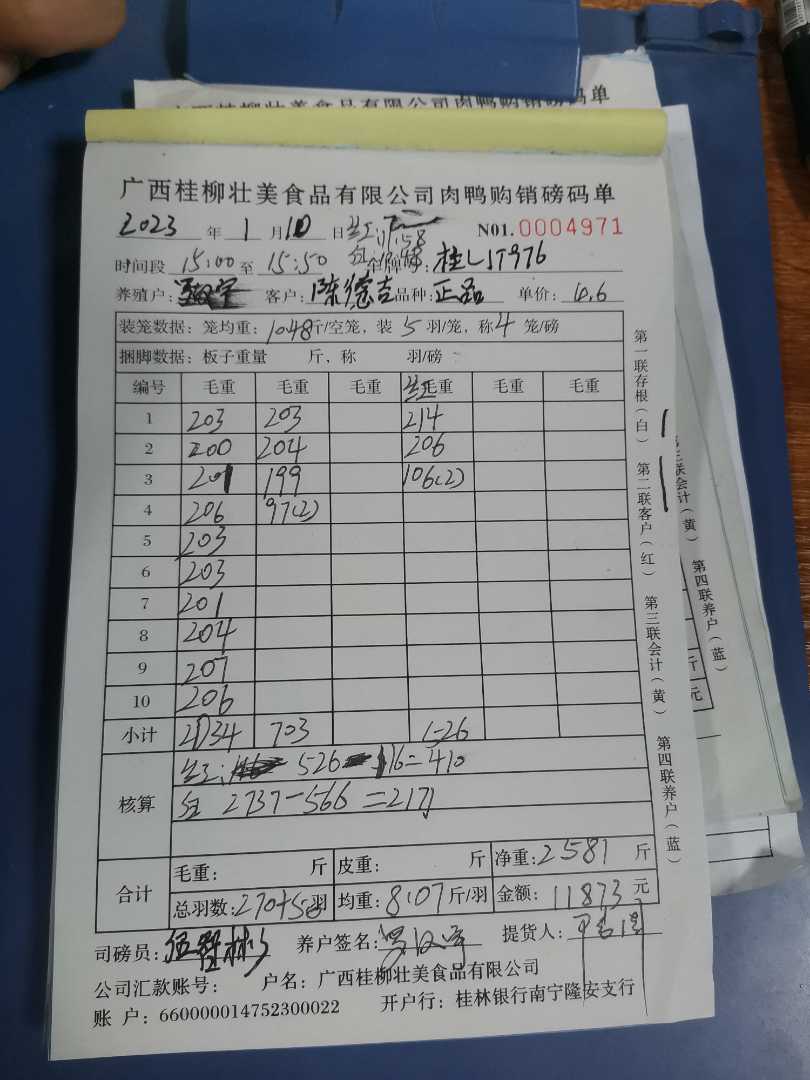 广西桂柳壮美食品有限公司肉鸭购销磅码单
广西桂柳壮美食品有限公司肉鸭购销磅码单
2023 年 1 月 10 日 N01. 0004971
时间段 15:00 至 15:50 车牌号: 桂LJT976
养殖户: 客户: 陈德吉 品种: 正品 单价: 4.6
装笼数据: 笼均重: 10.48 斤/空笼, 装 5 羽/笼, 称 4 笼/磅
捆脚数据: 板子重量 斤, 称 羽/磅
编号 毛重 毛重 毛重 毛重 毛重 毛重
1 203 203 214
2 200 204 206
3 201 199 106(2)
4 206 97(2)
5 203
6 203
7 201
8 204
9 207
10 206
小计 2034 703 526
核算 526 116=410
2737-566=2171
合计 毛重: 斤 皮重: 斤 净重: 2581 斤
总羽数: 270+50 羽 均重: 8.07 斤/羽 金额: 11873 元
司磅员: 养户签名: 提货人:
公司汇款账号: 户名: 广西桂柳壮美食品有限公司
账 户: 660000014752300022 开户行: 桂林银行南宁隆安支行
第一联存根(白) 第二联客户(红) 第三联会计(黄) 第四联养户(蓝)
第三联会计(黄) 第四联养户(蓝)
斤
元